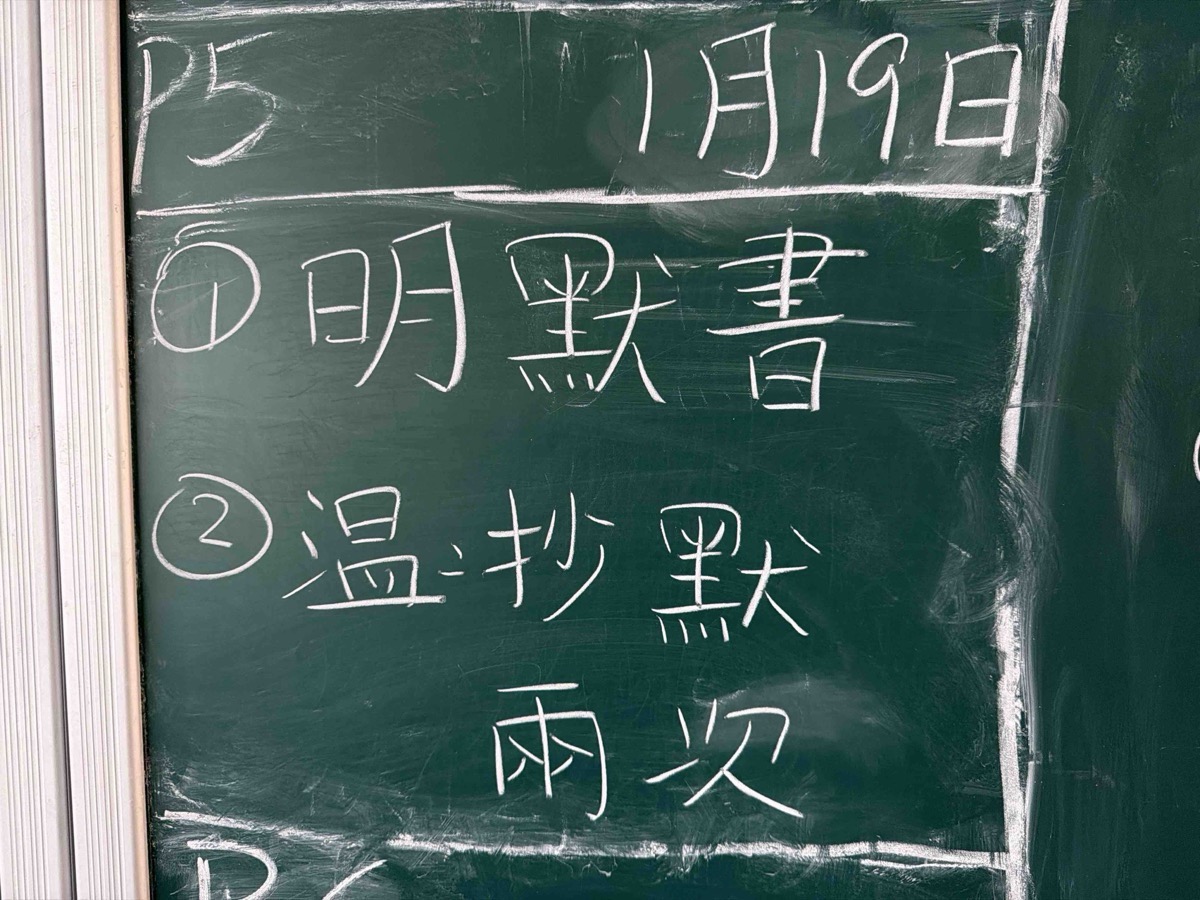 P5 1月19日
①明默書
②温:抄默
兩次